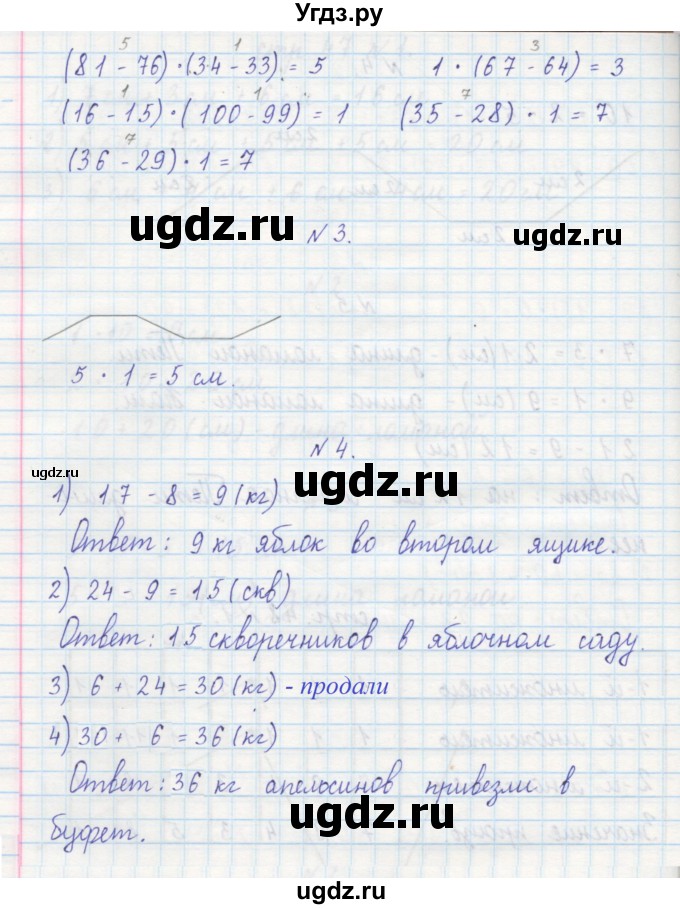 Угдз.ру
5 1 3
(81 - 76) · (34 - 33) = 5 1 · (67 - 64) = 3
1 1 7
(16 - 15) · (100 - 99) = 1 (35 - 28) · 1 = 7
7
(36 - 29) · 1 = 7
ugdz.ru ugdz.ru
№ 3.
5 · 1 = 5 см.
№ 4.
ugdz.ru
1) 17 - 8 = 9 (кг)
ugdz.ru
Ответ: 9 кг яблок во втором ящике.
2) 24 - 9 = 15 (скв)
ugdz.ru
Ответ: 15 скворечников в яблочном саду.
3) 6 + 24 = 30 (кг) - продали
4) 30 + 6 = 36 (кг)
ugdz.ru
Ответ: 36 кг апельсинов привезли в
ugdz.ru
буфет.
ugdz.ru